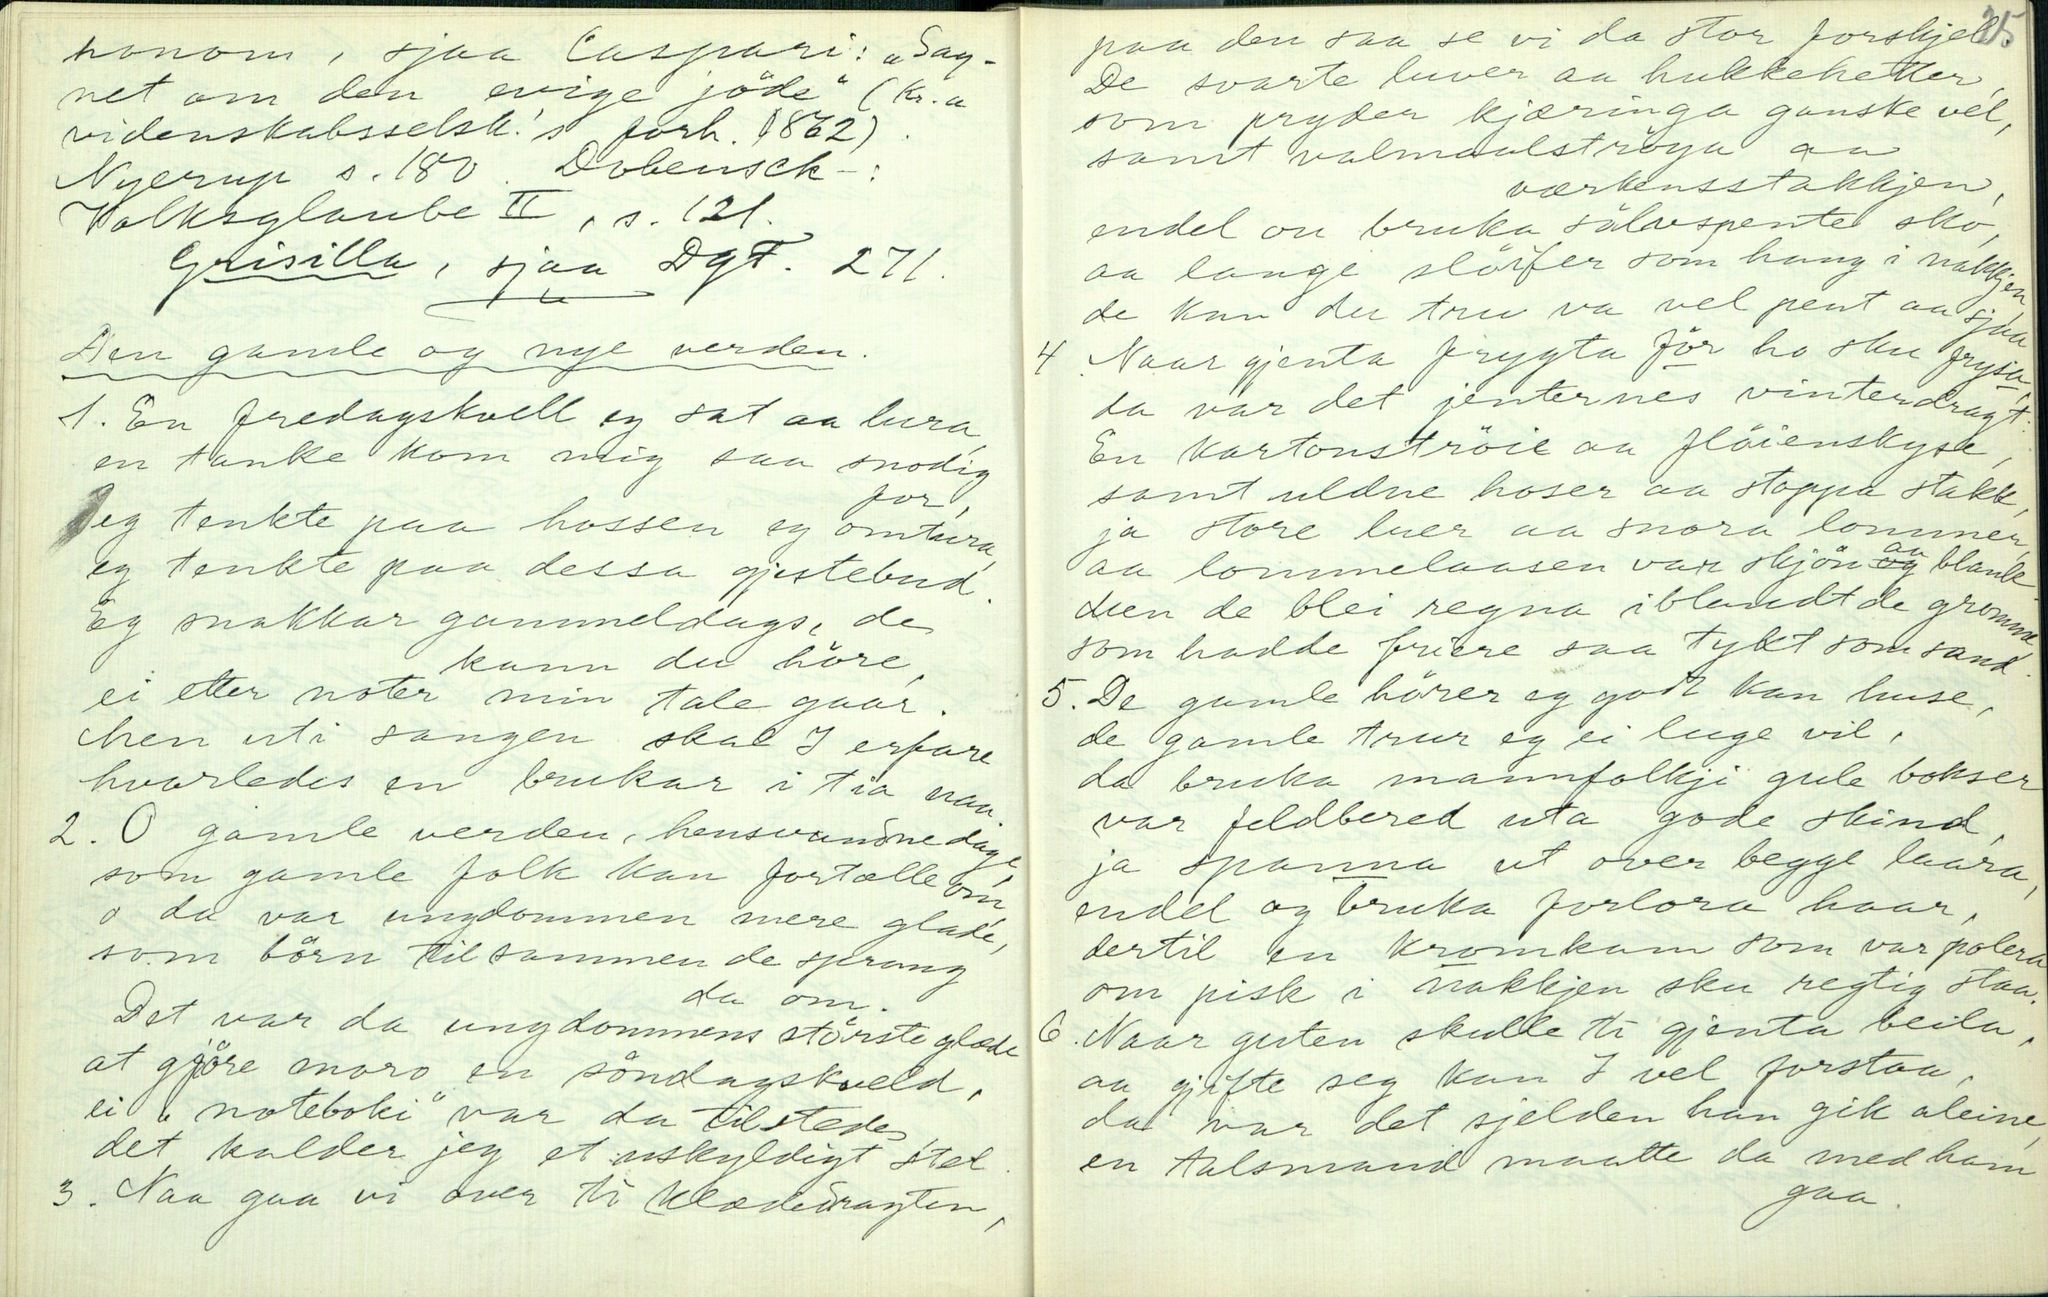 honom, sjaa Caspari: „Sag-
net om den evige jöde“ (Kr.a
videnskabsselsk.'s forh. 1862).
Nyerup s. 180. Dobensck-:
Volksglaube II, s. 121.
Grisilla, sjaa DgF. 271.
Den gamle og nye verden.
1. En fredagskvell eg sat aa lura,
en tanke kom mig saa snodig
for,
Jeg tenkte paa hossen eg omtura,
eg tenkte paa dessa gjestebud.
Eg snakkar gammeldags, de
kann du höre,
ei etter noter min tale gaar.
Men uti sangen skal I erfare
hvorledes en brukar i tia naa.
2. O gamle verden, hensvundne dage,
som gamle folk kan fortælle om,
o da var ungdommen mere glade,
som börn tilsammen de sprang
da om.
Det var da ungdommens störste glæde
at gjöre moro en söndagskveld,
ei „noteboki“ var da tilstede,
det kalder jeg et uskyldigt stel.
3. Naa gaa vi over ti klædedragten,
25
paa den saa se vi da stor forskjel.
De svarte luver aa hukkehetter,
som pryder kjæringa ganske vel,
samt valmaalströya aa
værkensstakkjen,
endel ou bruka sölvspente sko,
aa lange slöifer som hang i nakkjen
de kan du tru va vel pent aa sjaa
4. Naar gjenta frygta för ho sku frysa,
da var det jenternes vinterdragt:
En kartonströie aa flöienskyse,
samt uldne hoser aa stoppa stakk,
ja store luer aa snora lommer,
aa lommelaasen var skjön og aa blank
den de blei regna iblandt de gromme,
som hadde friere saa tykt som sand.
5. De gamle hörer eg godt kan huse,
de gamle trur eg ei luge vil,
da bruka mannfolkji gule bokser
var feldbered uta gode skind,
ja spanna ut over begge laara,
endel og bruka forlora haar,
dertil en kromkam som var polera
om pisk i nakkjen sku regtig staa.
6. Naar guten skulle ti gjenta beila,
aa gjifte seg kan I vel forstaa,
da var det sjelden han gik aleine,
en talsmand maatte da med ham
gaa.